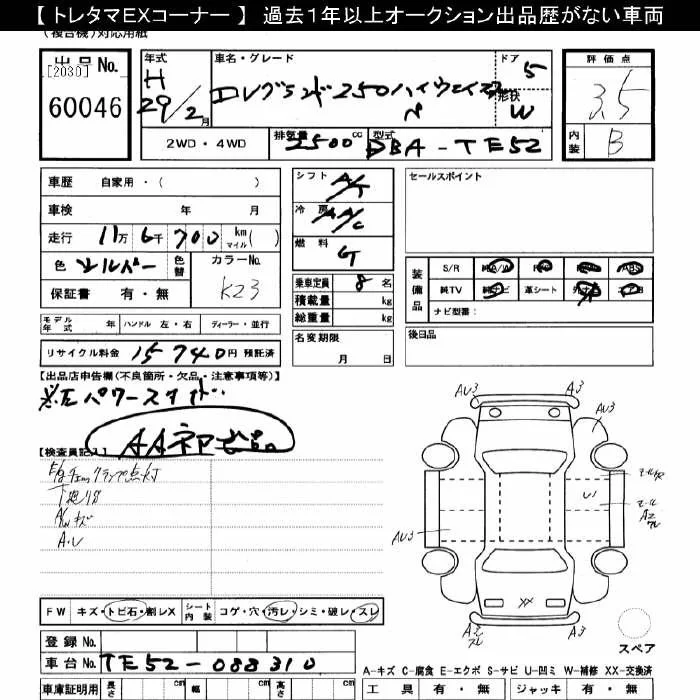 【トレタマEXコーナー】 過去1年以上オークション出品歴がない車両
(複合機)対応用紙
出品No.
[2030]
60046
年式
H
29/2月
車名・グレード
エレグランド250ハイウェイスター
ドア
5
形状
W
評価点
3.5
内装
B
2WD・4WD
排気量
2500cc
型式
DBA-TE52
車歴 自家用・( )
車検 年 月
走行 11万6千700 km マイル( )
色 シルバー 色替 カラーNo.
K23
保証書 有・無
シフト A/T
冷房 A/C
燃料 G
乗車定員 8名
積載量 kg
総重量 kg
セールスポイント
装備品
S/R 純A/W ABS
純TV 純ナビ 革シート
ナビ型番:
モデル年式 年 ハンドル 左・右 ディーラー・並行
リサイクル料金 15740円 預託済
名変期限
月 日
後日品
【出品店申告欄(不良箇所・欠品・注意事項等)】
※左パワースライド
AA初出品
【検査員記入】
E/gチェックランプ点灯
下廻りサ
A/Wキズ
A・U
AU3
A3
AU3
AU3
A3
XX
スペア
FW キズ・トビ石・割レX シート内装 コゲ・穴・汚レ・シミ・破レ・スレ
登録No.
車台No. TE52-088310
A-キズ C-腐食 E-エクボ S-サビ U-凹ミ W-補修 XX-交換済
車庫証明用 長さ cm 幅 cm 高さ cm
工具 有・無 ジャッキ 有・無